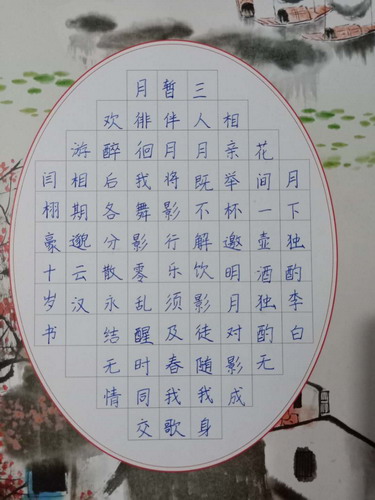 月下独酌李白
花间一壶酒独酌无
相亲举杯邀明月对影成
三人月既不解饮影徒随我身
暂伴月将影行乐须及春我歌
月徘徊我舞影零乱醒时同交
欢醉后各分散永结无情
游相期邈云汉
闫栩豪十岁书